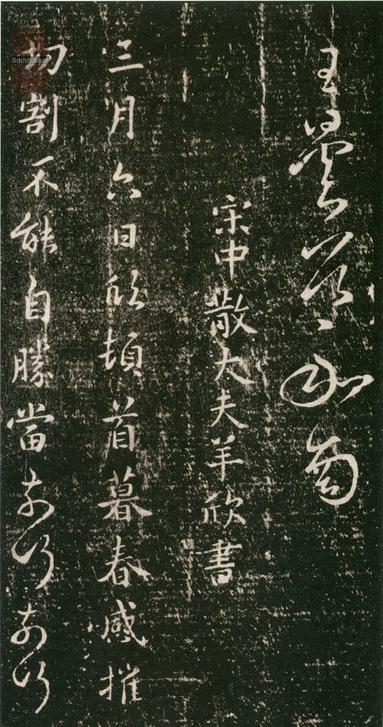 宋中散大夫羊欣書
三月六日欣頓首暮春感摧
切割不能自勝當奈何奈何